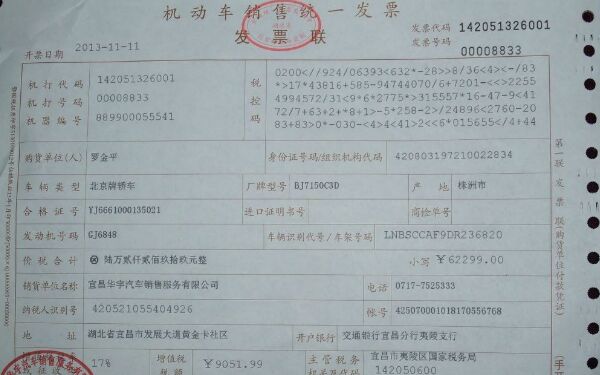 机动车销售统一发票
发票联
发票代码 142051326001
发票号码 00008833
开票日期 2013-11-11
机打代码 142051326001
机打号码 00008833
机器编号 889900055541
税控码
0200<//924/06393<632*-28>>8/36<4><-/83
*>17*43816+585-94744070/6+7201-<<>2255
4994572/31<9*6*2775*>315557*16-47-9<41
72/7+63+2+*8+1>-5*258-2>/24896<2760-20
83+83>0*-030-<4>4<41>2<<6*015655</4+44
购货单位(人) 罗金平 身份证号码/组织机构代码 420803197210022834
车辆类型 北京牌轿车 厂牌型号 BJ7150C3D 产地 株洲市
合格证号 YJ6661000135021 进口证明书号 商检单号
发动机号码 GJ6848 车辆识别代号/车架号码 LNBSCCAF9DR236820
价税合计 ⊗ 陆万贰仟贰佰玖拾玖元整 小写 ￥62299.00
销货单位名称 宜昌华宇汽车销售服务有限公司 电话 0717-7525333
纳税人识别号 420521055404926 帐号 42507000101817055676​8
地址 湖北省宜昌市发展大道黄金卡社区 开户银行 交通银行宜昌分行夷陵支行
17% 增值税税额 ￥9051.99 主管税务机关及代码 宜昌市夷陵区国家税务局
142050600
第一联 发票联(购货单位付款凭证)